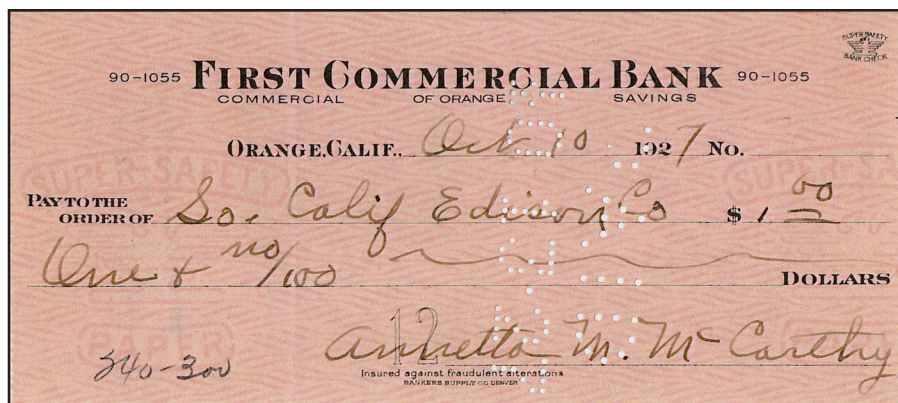 SUPER SAFETY
BANK CHECK
90-1055 FIRST COMMERCIAL BANK 90-1055
COMMERCIAL OF ORANGE SAVINGS
ORANGE, CALIF., Oct 10 1927 No.
PAY TO THE
ORDER OF So. Calif Edison Co $ 1 00
One & no/100 DOLLARS
SUPER-SAFETY SUPER-SA
PAPER
12
Annetta M. McCarthy
240-300
Insured against fraudulent alterations
BANKERS SUPPLY CO DENVER